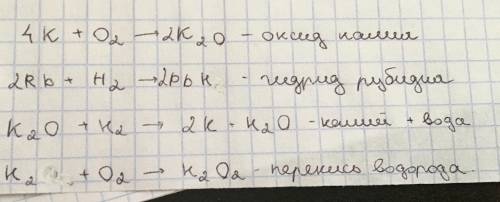 4K + O₂ → 2K₂O - оксид калия
2Rb + H₂ → 2RbH - гидрид рубидия
K₂O + H₂ → 2K + H₂O - калий + вода
H₂ + O₂ → H₂O₂ - перекись водорода.